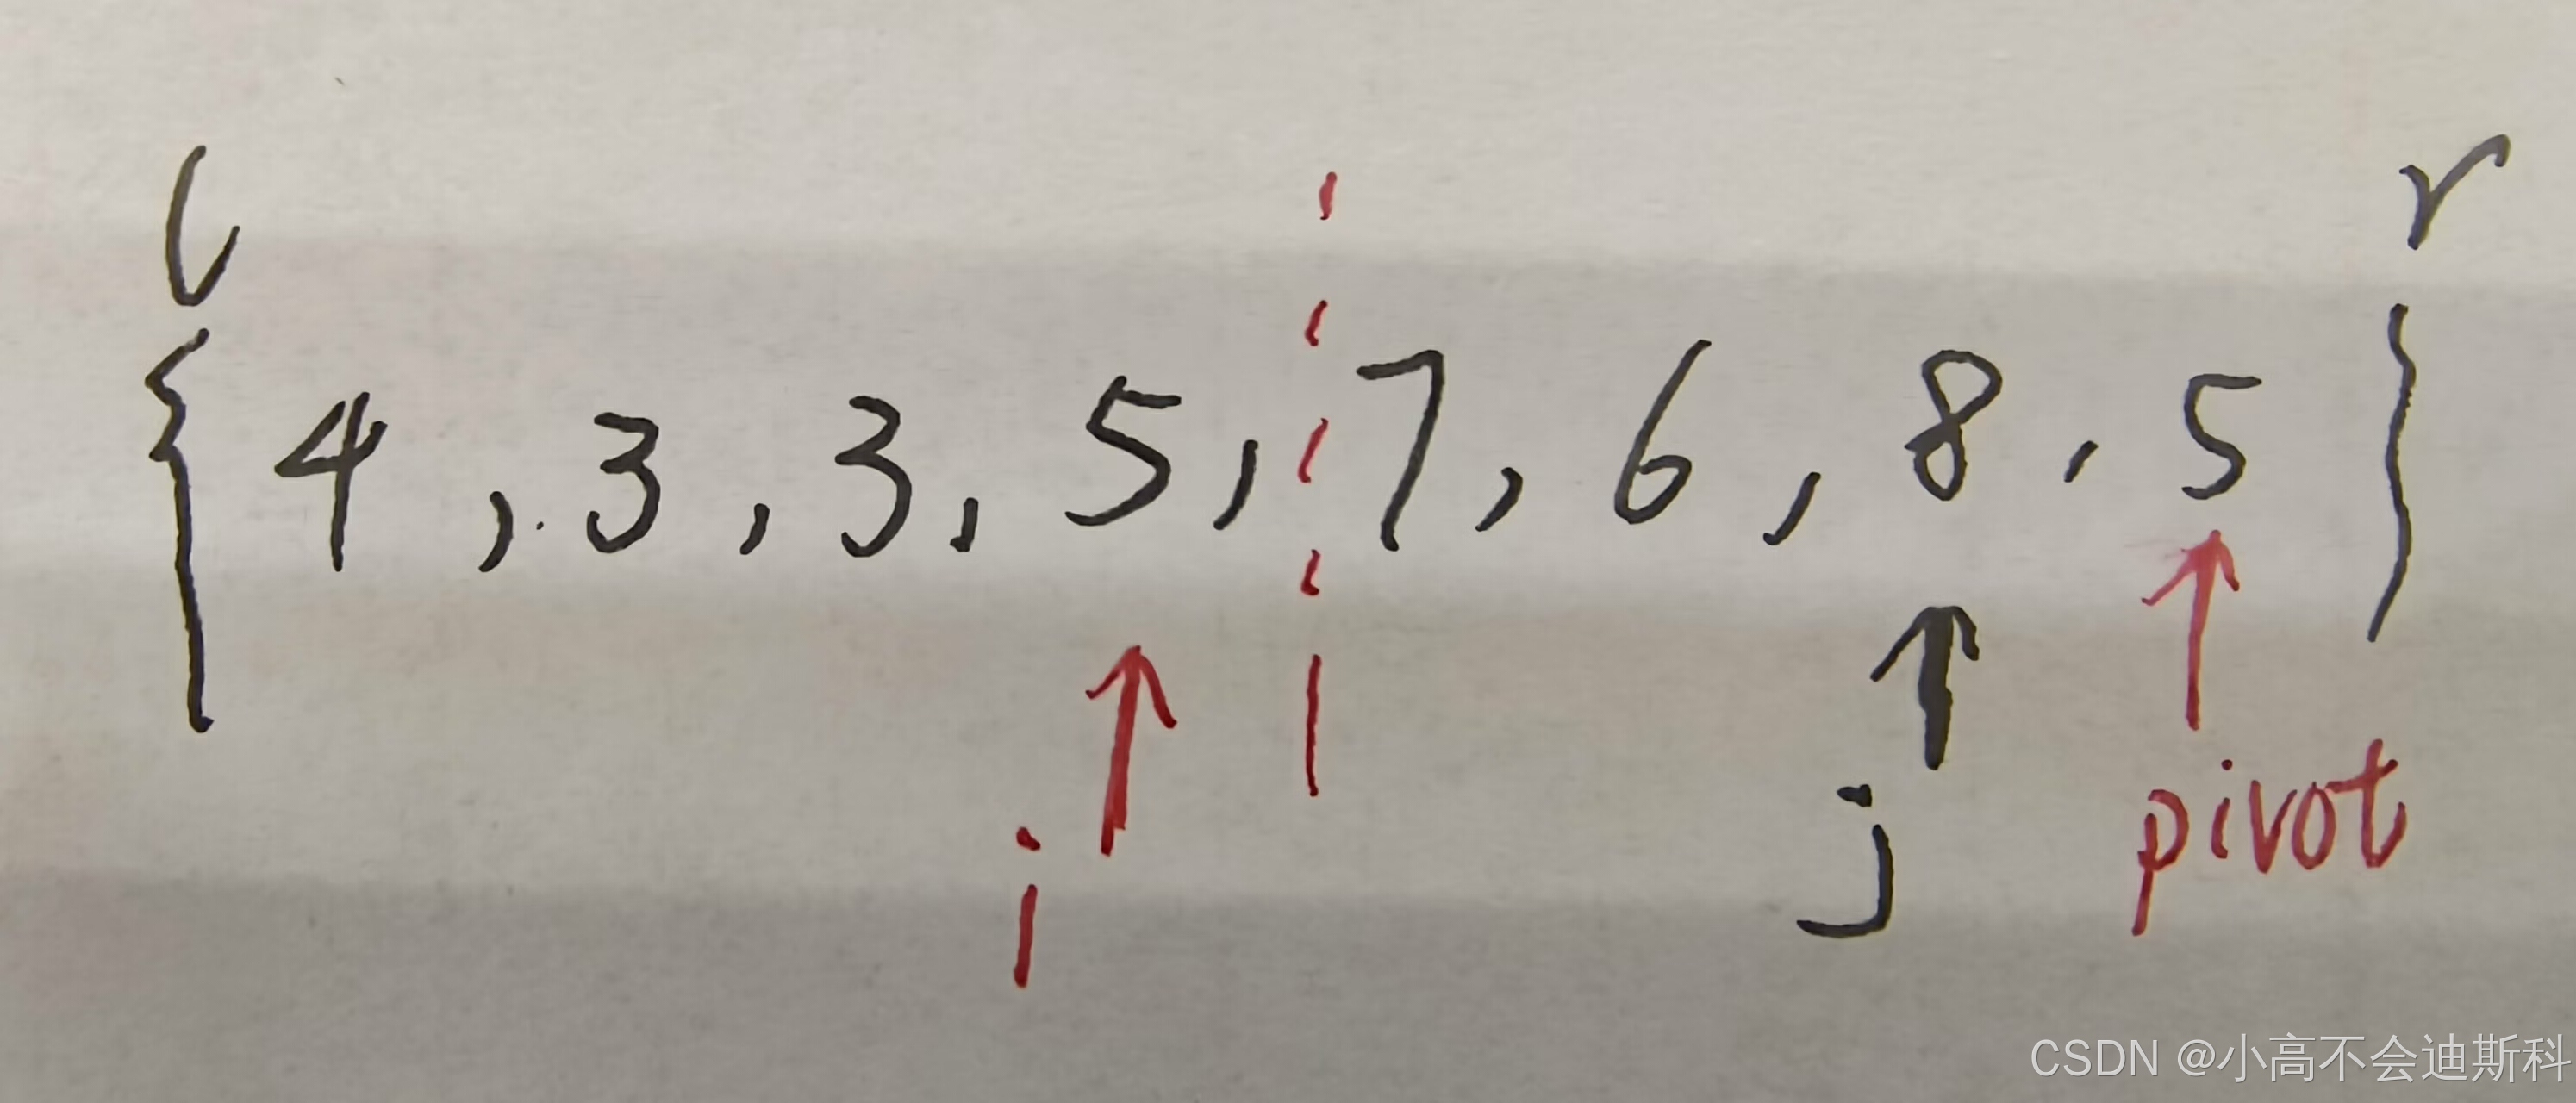 l r
{ 4, 3, 3, 5, 7, 6, 8, 5 }
i j pivot
CSDN @小高不会迪斯科